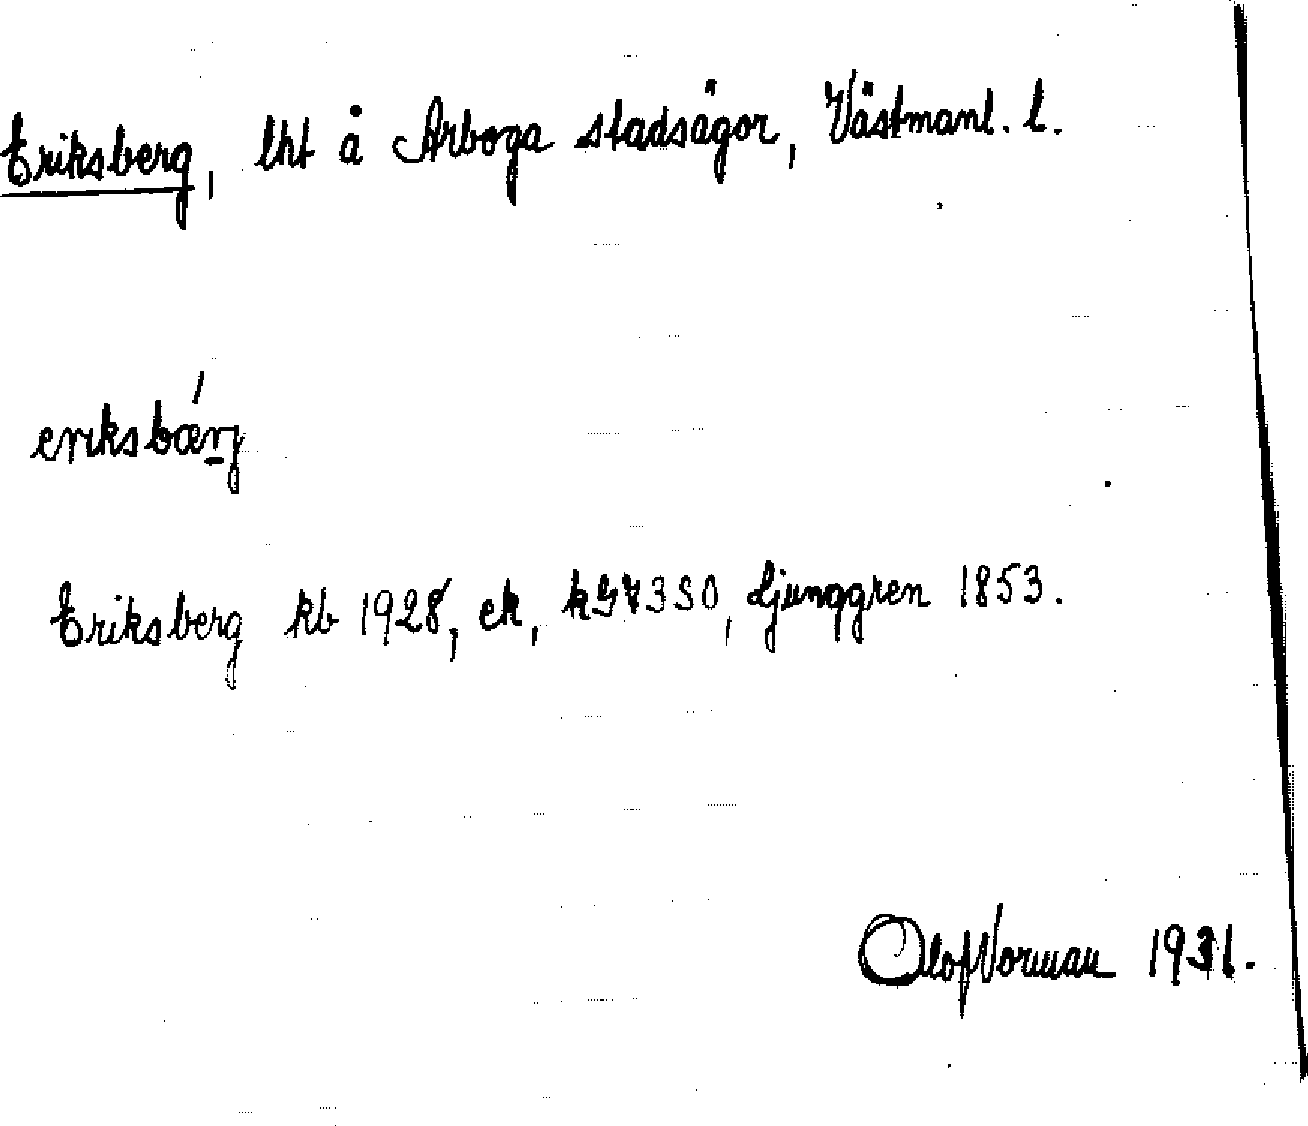 Eriksberg, lht å Arboga stadsägor, Västmanl. l.
eriksbærj
Eriksberg kb 1928, ek, Ljunggren 1853.
Olof Norman 1931.